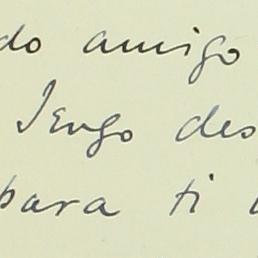 do amigo
Tengo des
para ti